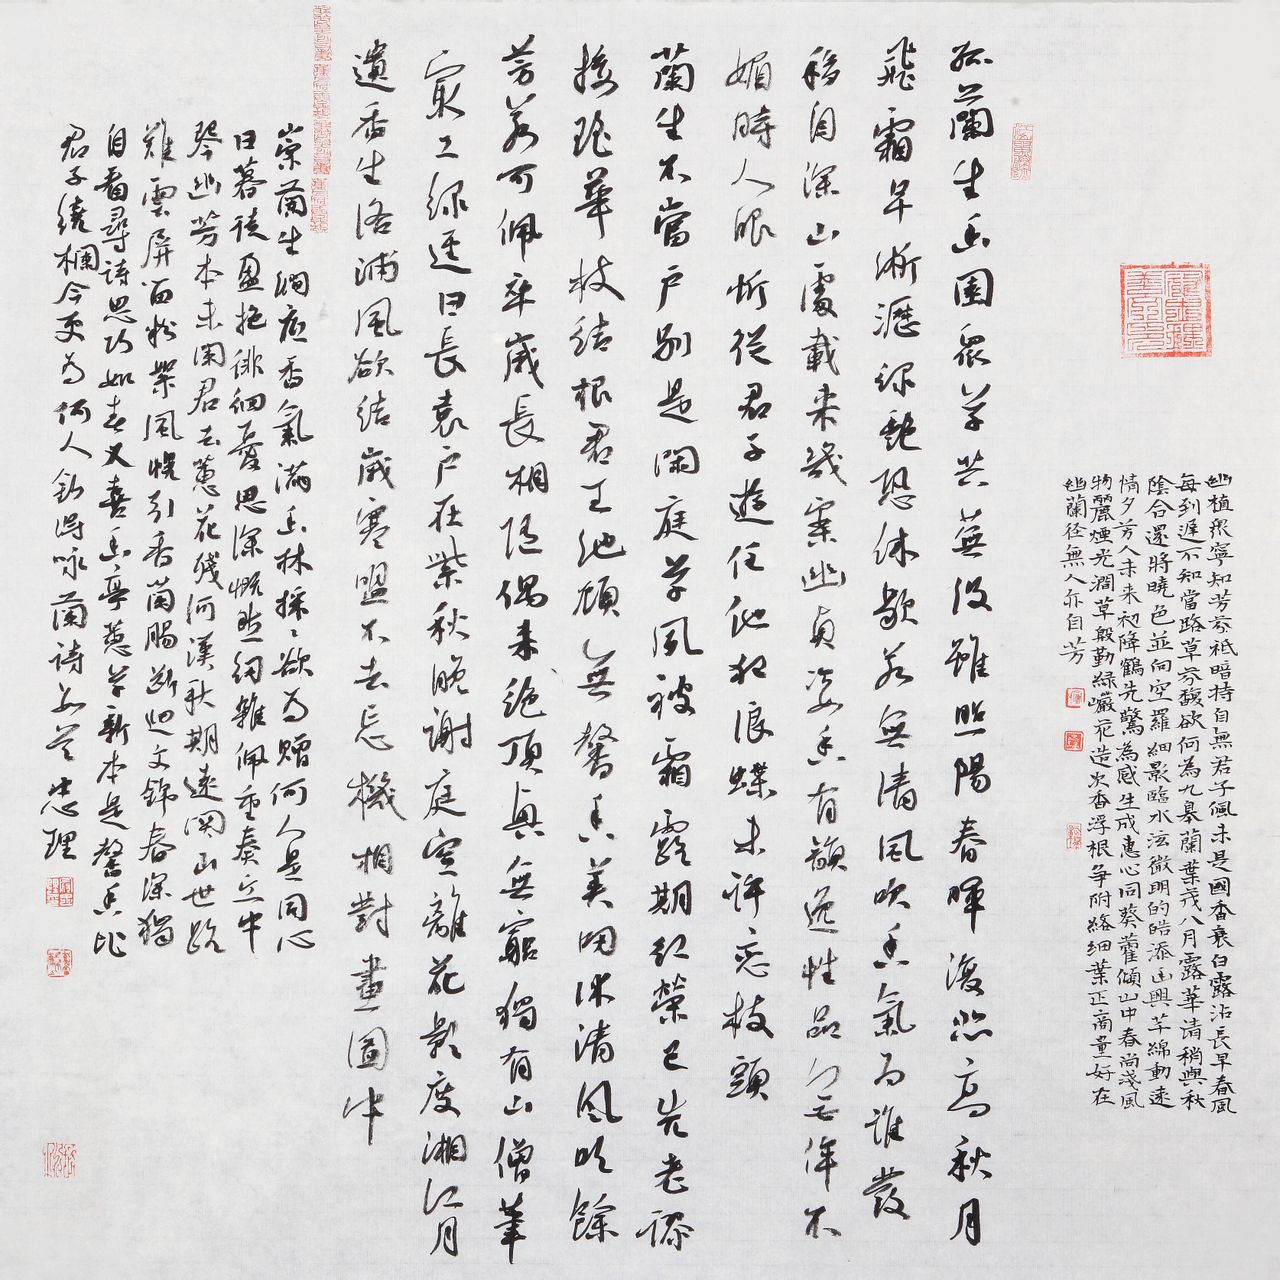 幽植眾寧知芬芳祗暗持自無君子佩未是國香衰白露沾長早春風
每到遲不知當路草芬馥欲何為九皋蘭葉茂八月露華清稍與秋
陰合還將曉色並向空羅細影臨水泫微明的皓添幽興芊綿動遠
情夕芳人未來初降鶴先驚為感生成惠心同葵藿傾山中春尚淺風
物麗煙光澗草殷勤綠巖花造次香浮根爭附絡細葉正商量好在
幽蘭徑無人亦自芳
孤蘭生幽園眾草共蕪沒雖照陽春暉復悲高秋月
飛霜早淅瀝綠艷恐休歇若無清風吹香氣為誰發
移自深山處栽來幾案幽貞姿香有韻逸性品無儔不
媚時人眼忻從君子遊任他狂浪蝶未許戀枝頭
蘭生不當戶別是閑庭草夙被霜露期紅榮已先老謬
接瑤華枝結根君王池頓無馨香美叨沐清風吹餘
芳若可佩卒歲長相隨偶來絕頂興無窮獨有山僧筆
最工綠逕日長袁戶在紫秋晚謝庭空離花影度湘江月
遺香生洛浦風欲結歲寒盟不去忘機相對畫圖中
崇蘭生澗底香氣滿幽林採採欲為贈何人是同心
日暮徒盈抱徘徊憂思深慨然紉雜佩重奏丘中
琴幽芳本未闌君去蕙花殘河漢秋期遠關山世路
難雲屏留粉絮風幌引香蘭腸斷迴文錦春深獨
自看尋詩思巧如春又喜幽亭蕙草新本是馨香比
君子繞欄今更為何人 釗得詠蘭詩 忠理